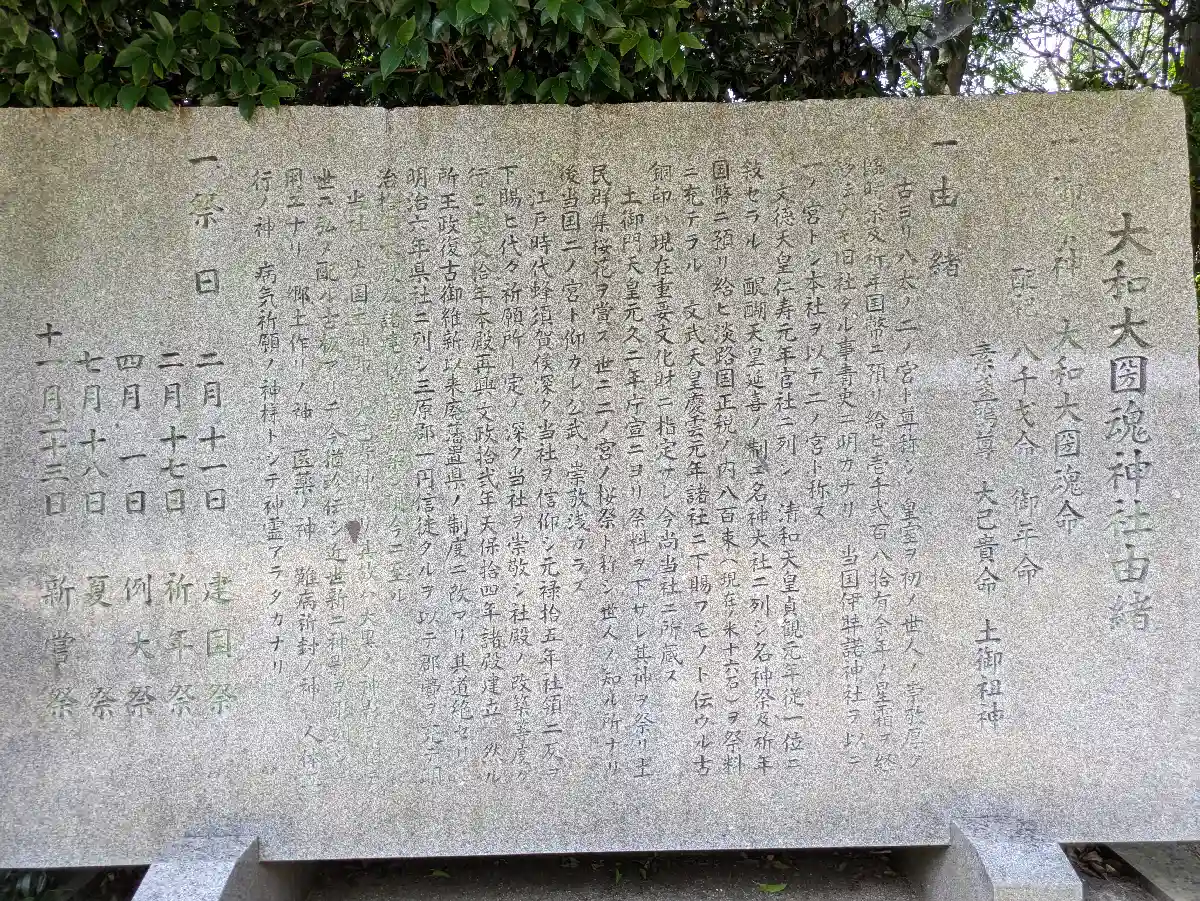 大和大圀魂神社由緒
一 御祭神 大和大圀魂命
配祀 八千戈命 御年命
素盞嗚尊 大己貴命 土御祖神
一 由緒
古ヨリ八太ノ二ノ宮ト尊称シ 皇室ヲ初メ世人ノ崇敬厚ク
臨時祭又祈年国幣ニ預リ給ヒ壱千弐百八拾有余年ノ星霜ヲ経
タルモ 旧社タル事青史ニ明カナリ 当国伊弉諾神社ヲ以ニ
一ノ宮トシ本社ヲ以テ二ノ宮ト称ス
文徳天皇仁寿元年官社ニ列シ 清和天皇貞観元年従一位ニ
叙セラル 醍醐天皇延喜ノ制ニ名神大社ニ列シ名神祭及祈年
国幣ニ預リ給ヒ淡路国正税ノ内八百束(現在ノ米十六石)ヲ祭料
ニ充テラル 文武天皇慶雲元年諸社ニ下賜フモノト伝ウル古
銅印ハ現在重要文化財ニ指定サレ今尚当社ニ所蔵ス
土御門天皇元久二年庁宣ニヨリ祭料ヲ下サレ其神ヲ祭リ土
民群集桜花ヲ賞ス 世ニ二ノ宮ノ桜祭ト称シ世人ノ知ル所ナリ
後当国二ノ宮ト仰カレ公武ノ崇敬浅カラズ
江戸時代蜂須賀侯深ク当社ヲ信仰シ元禄拾五年社領二反ヲ
下賜ヒ代々祈願所ト定メ深ク当社ヲ崇敬シ社殿ノ改築等度々
行ニ 文拾年本殿再興文政拾弐年天保拾四年諸殿建立 然ル
所王政復古御維新以来廃藩置県ノ制度ニ改マリ其道絶セリ
明治六年県社ニ列シ三原郡一円信徒タルヲ以テ郡費ヲ充テ明
治 今ニ至ル
上国 神 大 神
世ニ弘メ 古 今猶 近世新ニ神 ヲ
用ユナリ 郷土作リノ神 医薬ノ神 難病祈封ノ神 人体
行ノ神 病気祈願ノ神様トシテ神霊アラタカナリ
一 祭日 二月十一日 建国祭
二月十七日 祈年祭
四月 一日 例大祭
七月十八日 夏祭
十一月二十三日 新嘗祭